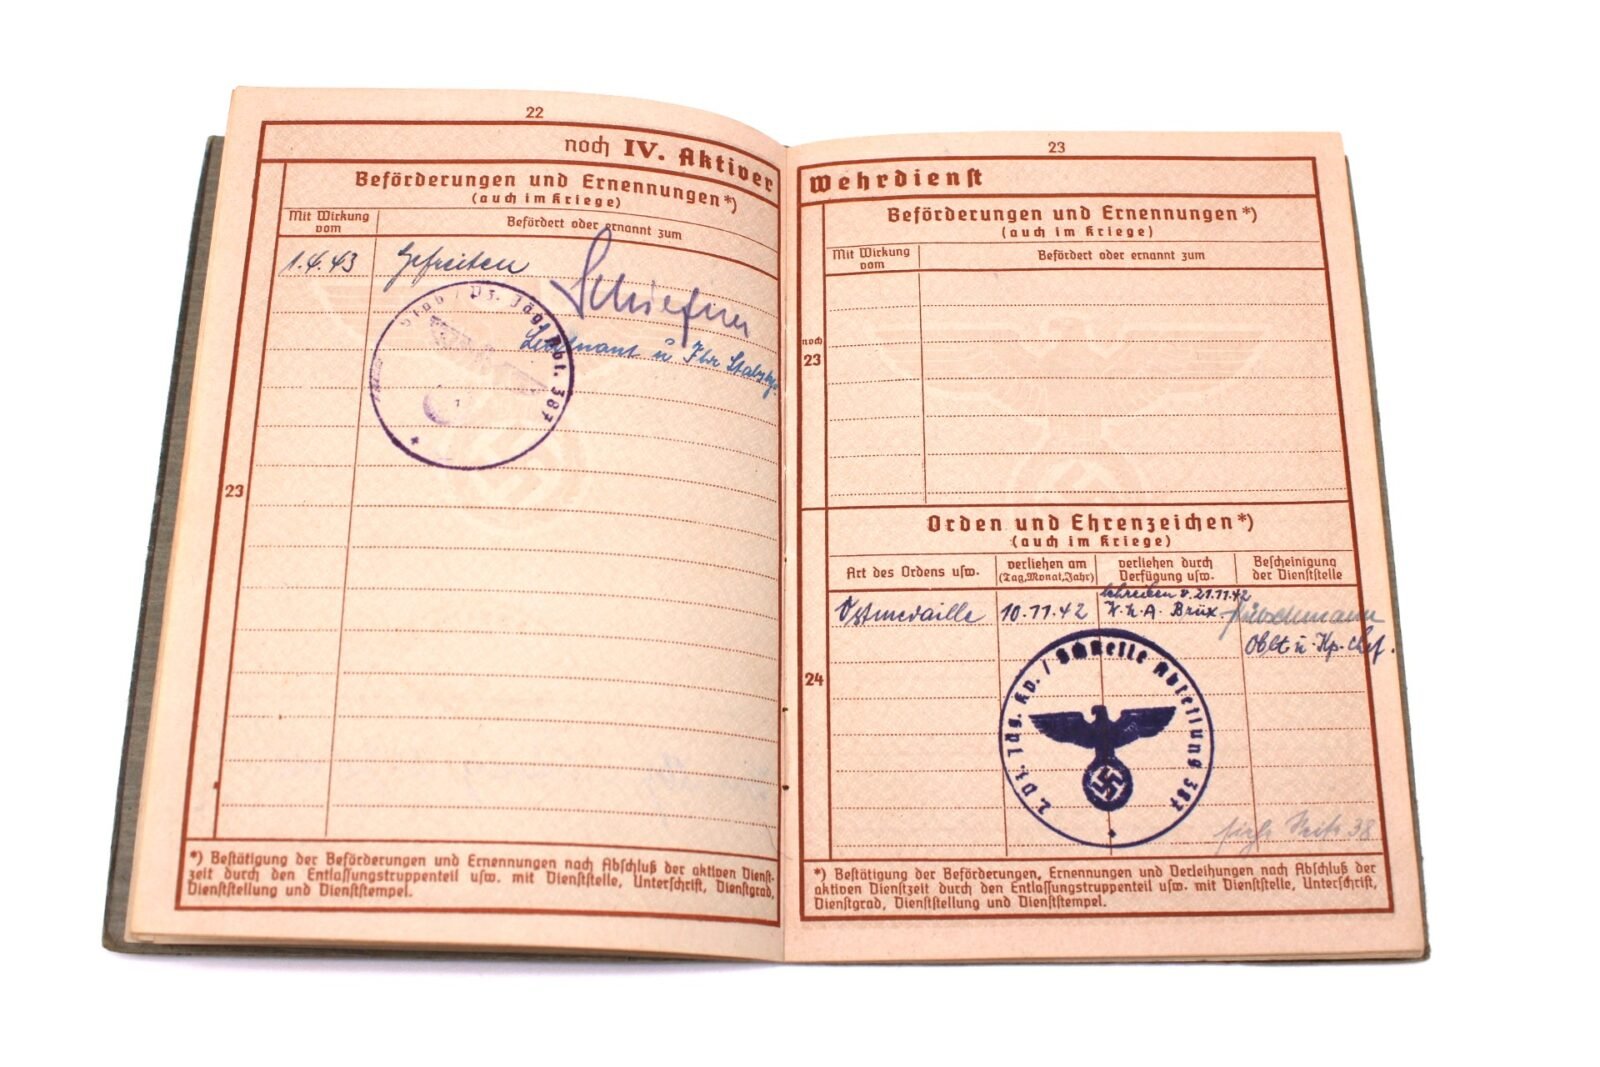 22
noch IV. Aktiver
Beförderungen und Ernennungen*)
(auch im Kriege)
Mit Wirkung vom
Befördert oder ernannt zum
1.4.43 Gefreiten
Stab / Pz. Jäg. Abt. 387
Leutnant u.
23
23
Wehrdienst
Beförderungen und Ernennungen*)
(auch im Kriege)
Mit Wirkung vom
Befördert oder ernannt zum
noch
23
Orden und Ehrenzeichen*)
(auch im Kriege)
Art des Ordens usw.
verliehen am (Tag, Monat, Jahr)
verliehen durch Verfügung usw.
Bescheinigung der Dienststelle
Schreiben v. 21.11.42
Ostmedaille 10.11.42 W.K.A. Brüx
Oblt u. Kp. Chef.
2. Pz. Jäg. Kp. / Schnelle Abteilung 387
24
siehe Seite 38
*) Bestätigung der Beförderungen und Ernennungen nach Abschluß der aktiven Dienst-
zeit durch den Entlassungstruppenteil usw. mit Dienststelle, Unterschrift, Dienstgrad,
Dienststellung und Dienststempel.
*) Bestätigung der Beförderungen, Ernennungen und Verleihungen nach Abschluß der
aktiven Dienstzeit durch den Entlassungstruppenteil usw. mit Dienststelle, Unterschrift,
Dienstgrad, Dienststellung und Dienststempel.